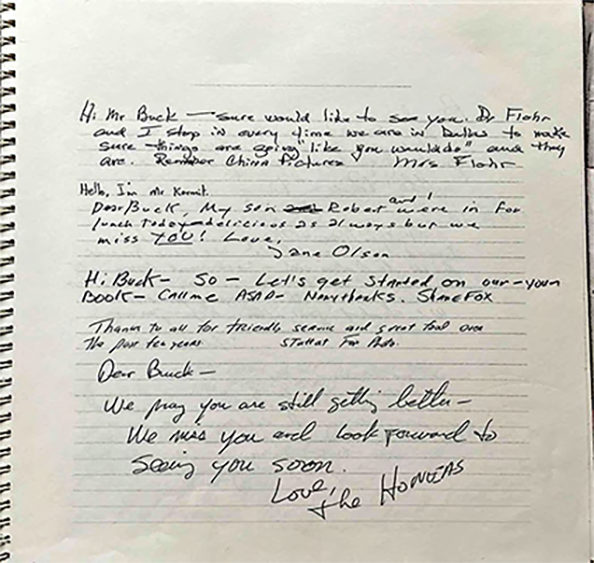 Hi Mr Buck — sure would like to see you. Dr Flohr
and I stop in every time we are in to make
sure things are going "like you would do" and they
are. Remember China Pictures Mrs Flohr
Hello, I'm Mr. Kermit.
Dear Buck, My son Robert and I were in for
lunch Today - delicious as always but we
miss YOU! Love,
Jane Olson
Hi Buck - So - Let's get started on our - your
Book - Call me ASAP - Many thanks. Shane Fox
Thanks to all for friendly service and great food over
the past ten years
Dear Buck —
We pray you are still getting better —
We miss you and look forward to
seeing you soon.
Love,
the